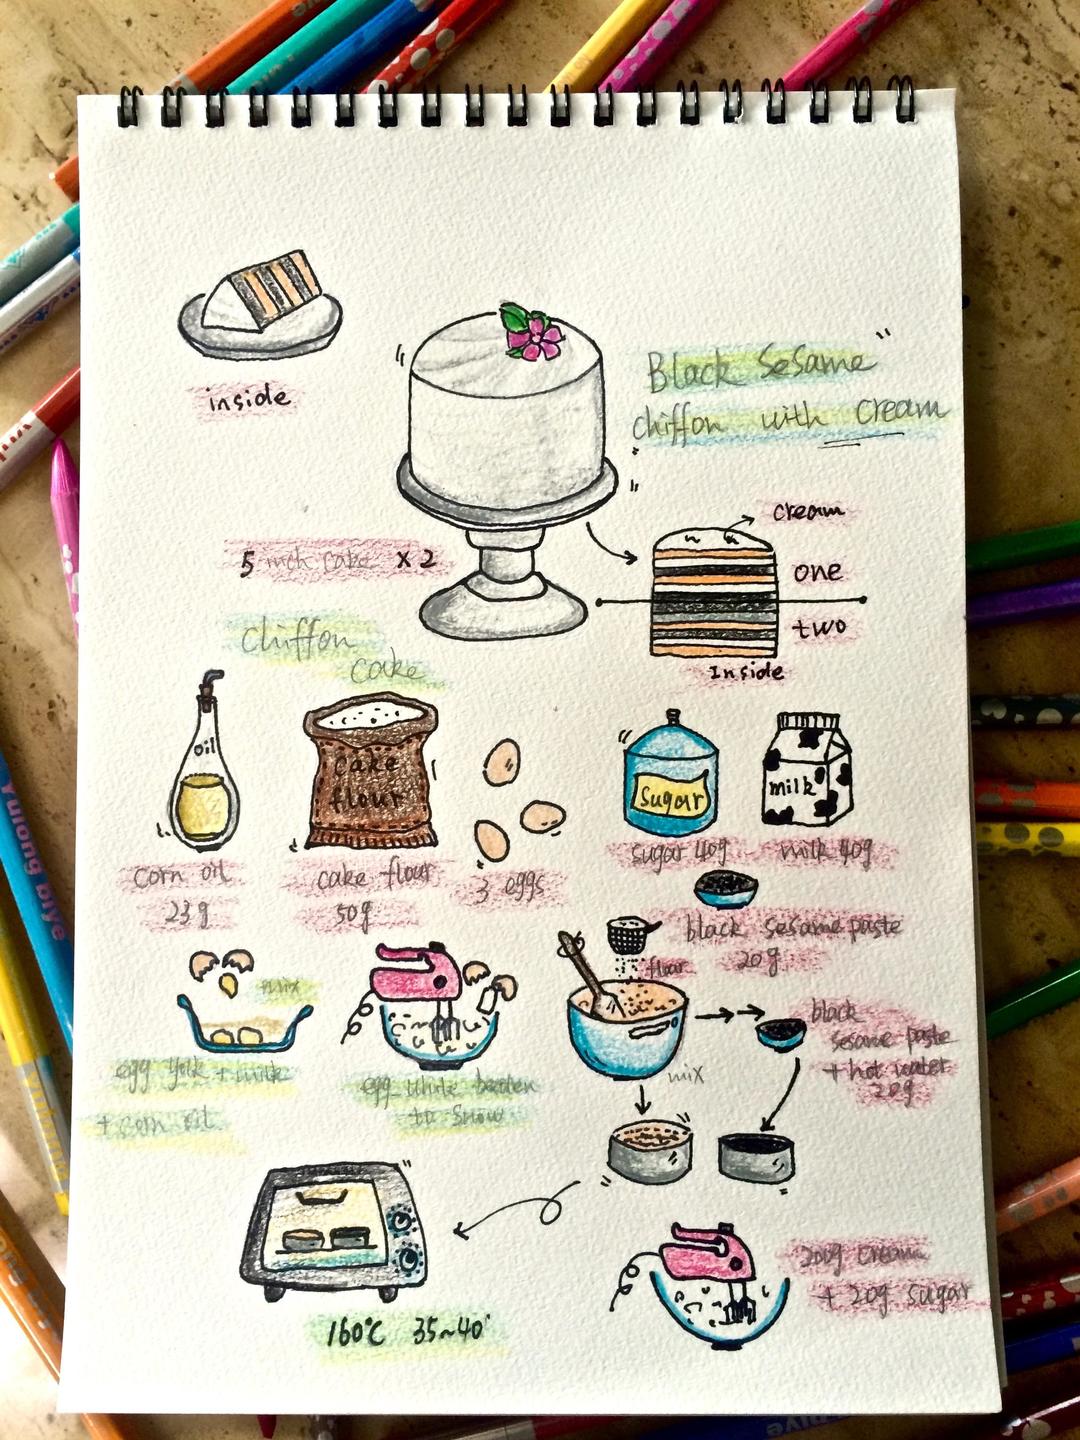 inside
Black Sesame
chiffon with cream
cream
one
two
Inside
5 inch cake x 2
Chiffon
cake
oil
cake
flour
Sugar
milk
corn oil
23g
cake flour
50g
3 eggs
sugar 40g
milk 40g
black sesame paste
20g
flour
mix
egg yolk + milk
+ corn oil
egg white beaten
to snow
mix
black
sesame paste
+ hot water
20g
160°C 35~40'
200g cream
+ 20g sugar
Yulong biye